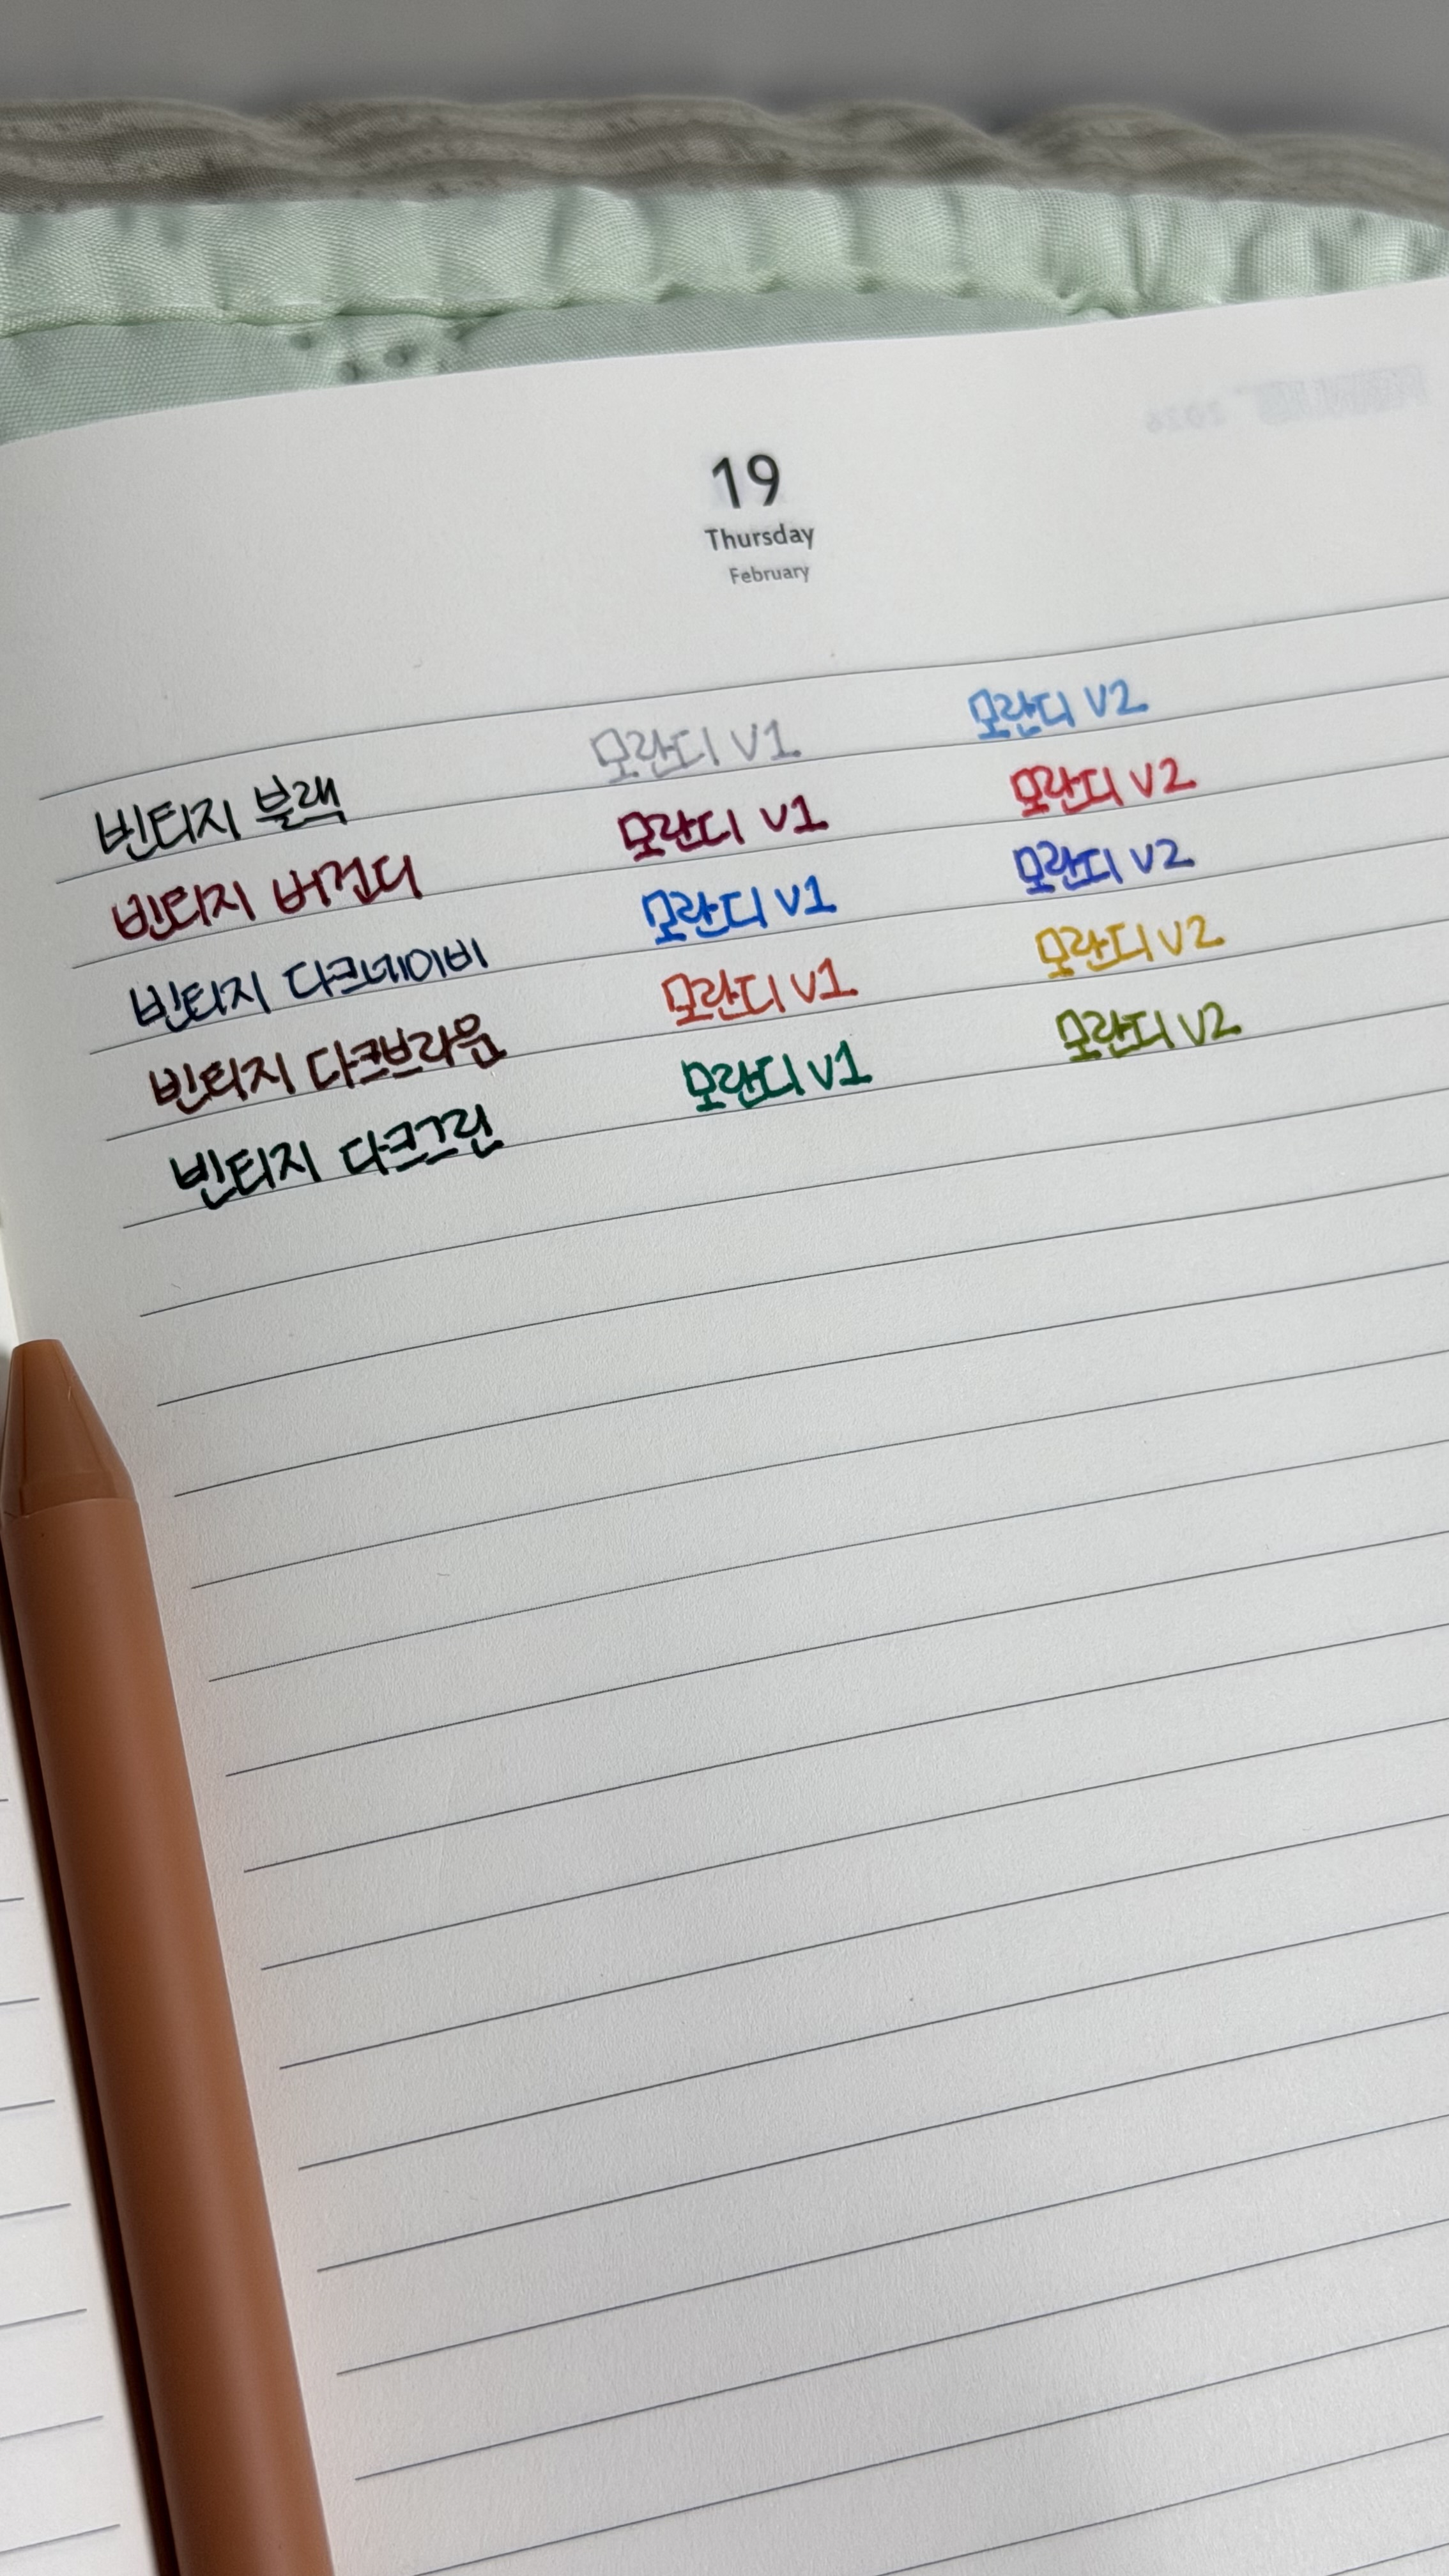 19
Thursday
February
빈티지 블랙
빈티지 버건디
빈티지 다크네이비
빈티지 다크브라운
빈티지 다크그린
모란디 V1
모란디 V1
모란디 V1
모란디 V1
모란디 V1
모란디 V2
모란디 V2
모란디 V2
모란디 V2
모란디 V2